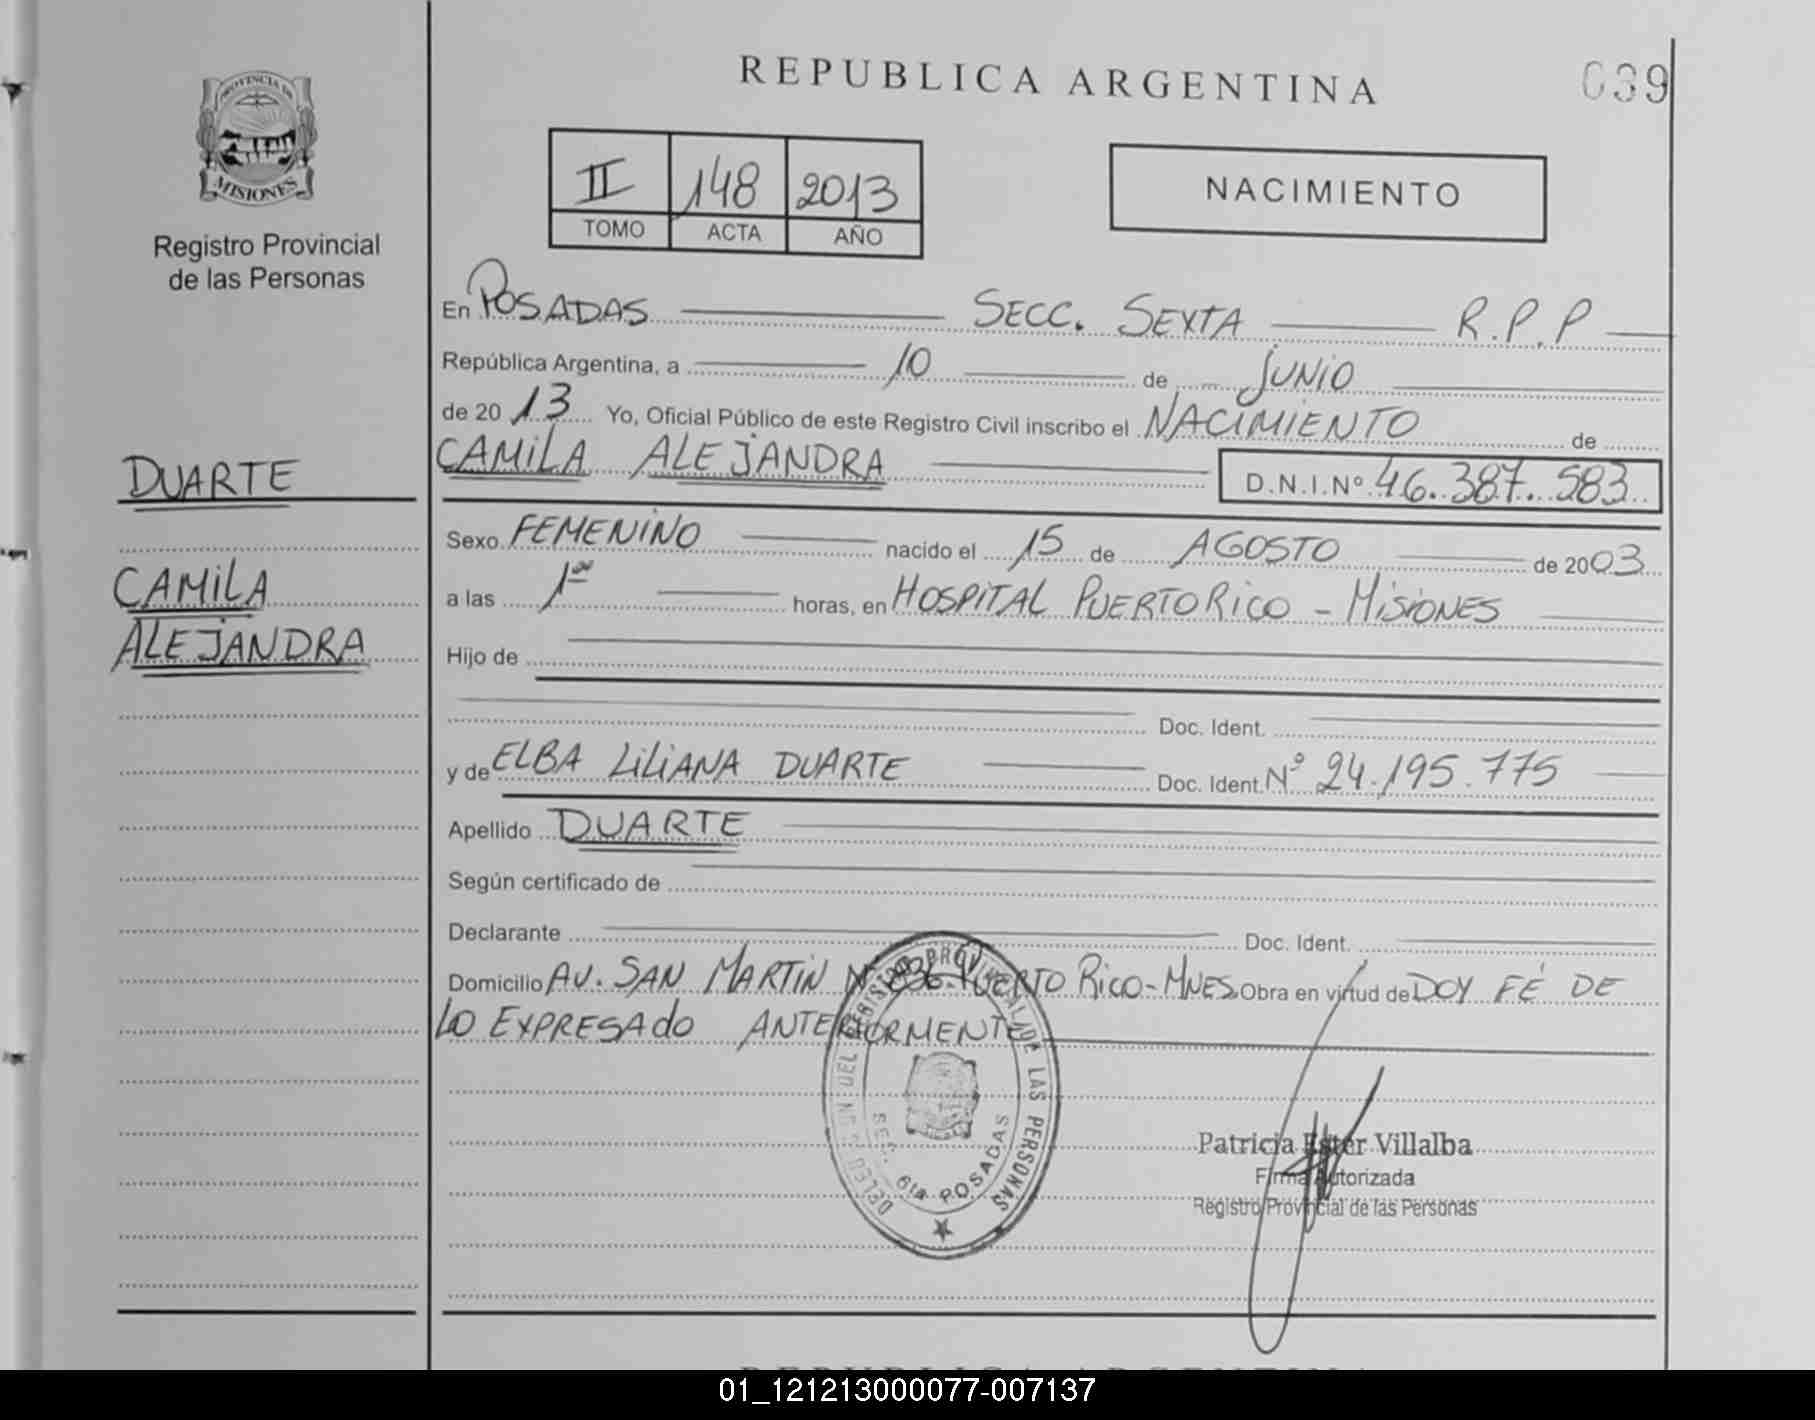 REPUBLICA ARGENTINA
039
PROVINCIA DE
MISIONES
Registro Provincial
de las Personas
II 148 2013
TOMO ACTA AÑO
NACIMIENTO
En POSADAS SECC. SEXTA R.P.P
República Argentina, a 10 de JUNIO
de 2013 Yo, Oficial Público de este Registro Civil inscribo el NACIMIENTO de
CAMILA ALEJANDRA D.N.I.Nº 46.387.583
DUARTE
CAMILA
ALEJANDRA
Sexo FEMENINO nacido el 15 de AGOSTO de 2003
a las 1 horas, en HOSPITAL PUERTO RICO - MISIONES
Hijo de
Doc. Ident.
y de ELBA LILIANA DUARTE Doc. Ident. Nº 24.195.775
Apellido DUARTE
Según certificado de
Declarante Doc. Ident.
Domicilio AV. SAN MARTIN Nº PUERTO RICO-MNES Obra en virtud de DOY FÉ DE
LO EXPRESADO ANTERIORMENTE
DEL REGISTRO PROVINCIAL DE LAS PERSONAS
SEC. 6ta POSADAS
Patricia Ester Villalba
Firma Autorizada
Registro Provincial de las Personas
01_121213000077-007137